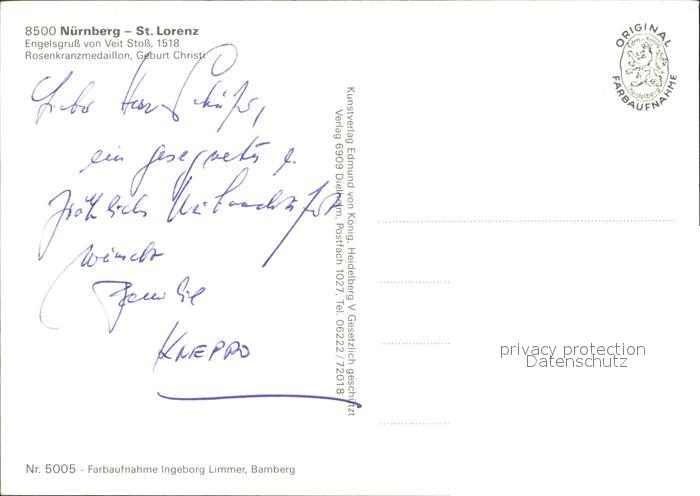 8500 Nürnberg – St. Lorenz
Engelsgruß von Veit Stoß, 1518
Rosenkranzmedaillon, Geburt Christi
ORIGINAL
FARBAUFNAHME
Edm. von König
Heidelberg
Lieber Herr Schäfer,
ein gesegnetes u.
fröhliches Weihnachtsfest
wünscht
Familie
KNEPPO
Kunstverlag Edmund von König, Heidelberg V Gesetzlich geschützt
Verlag 6909 Dielheim, Postfach 1027, Tel. 06222/72018
privacy protection
Datenschutz
Nr. 5005 - Farbaufnahme Ingeborg Limmer, Bamberg